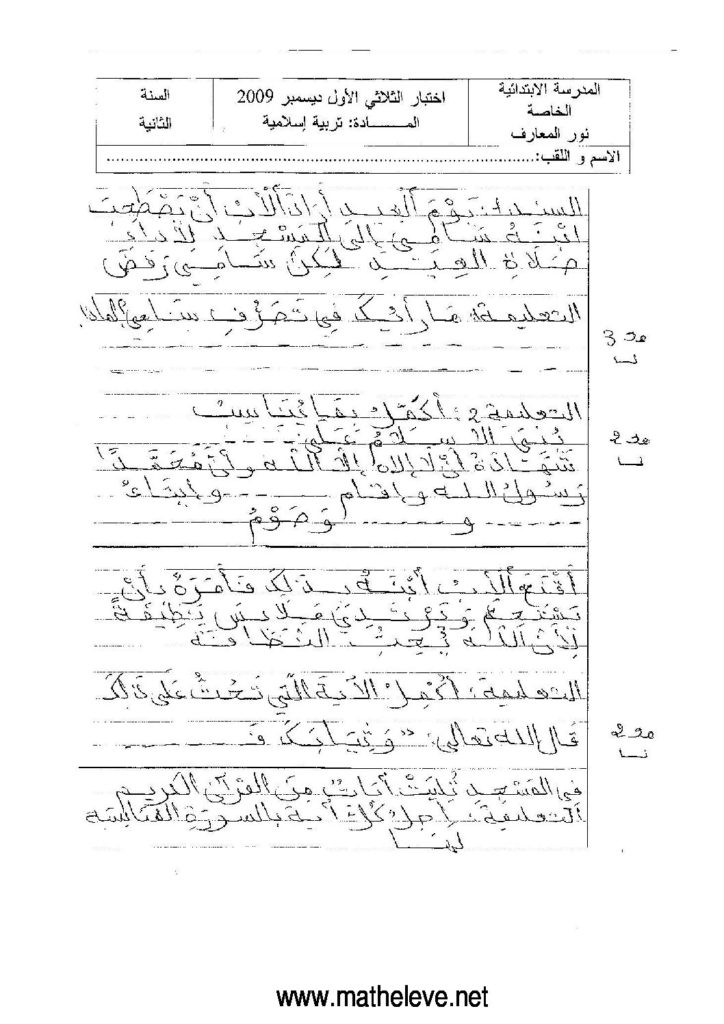 المدرسة الابتدائية
الخاصة
نور المعارف
اختبار الثلاثي الأول ديسمبر 2009
المـــــــادة: تربية إسلامية
السنة
الثانية
الاسم و اللقب:...............................................................................
السند 1: يَوْمَ العِيدِ أَرَادَ الْأَبُ أَنْ يَصْطَحِبَ
ابْنَهُ سَامِي إِلَى المَسْجِدِ لِأَدَاءِ
صَلَاةِ العِيدِ لَكِنَّ سَامِي رَفَضَ
التعليمة 1: مَا رَأْيُكَ فِي تَصَرُّفِ سَامِي؟ لماذا؟
مع 3
التعليمة 2: أكمّل بما يُناسب
بُنِيَ الإسلامُ عَلَى: - - - -
شَهَادَةُ أَنْ لَا إِلاه إلّا الله وأنّ مُحَمَّدًا
رَسُولُ الله وإقام - - - - وإيتاءُ
- - - - و - - - - وَصَوْمُ
مع 2
أَقْنَعَ الأَبُ ابْنَهُ بِذَلِكَ فَأَمَرَهُ بِأَنْ
يَسْتَحِمَّ وَيَرْتَدِي مَلَابِسَ نَظِيفَةً
لِأَنَّ اللهَ يُحِبُّ النَّظَافَة
التعليمة: أُكْمِلُ الآيَةَ الَّتِي تَحُثُّ عَلَى ذَلِكَ
قال الله تعالى: "وَثِيَابَكَ فَـ - - - -
مع 2
في المَسْجِدِ تُلِيَتْ آيَاتٌ مِنَ القُرْآنِ الكَرِيم
التعليمة: أصِلُ كُلَّ آية بالسورة المناسبة
لها
www.matheleve.net